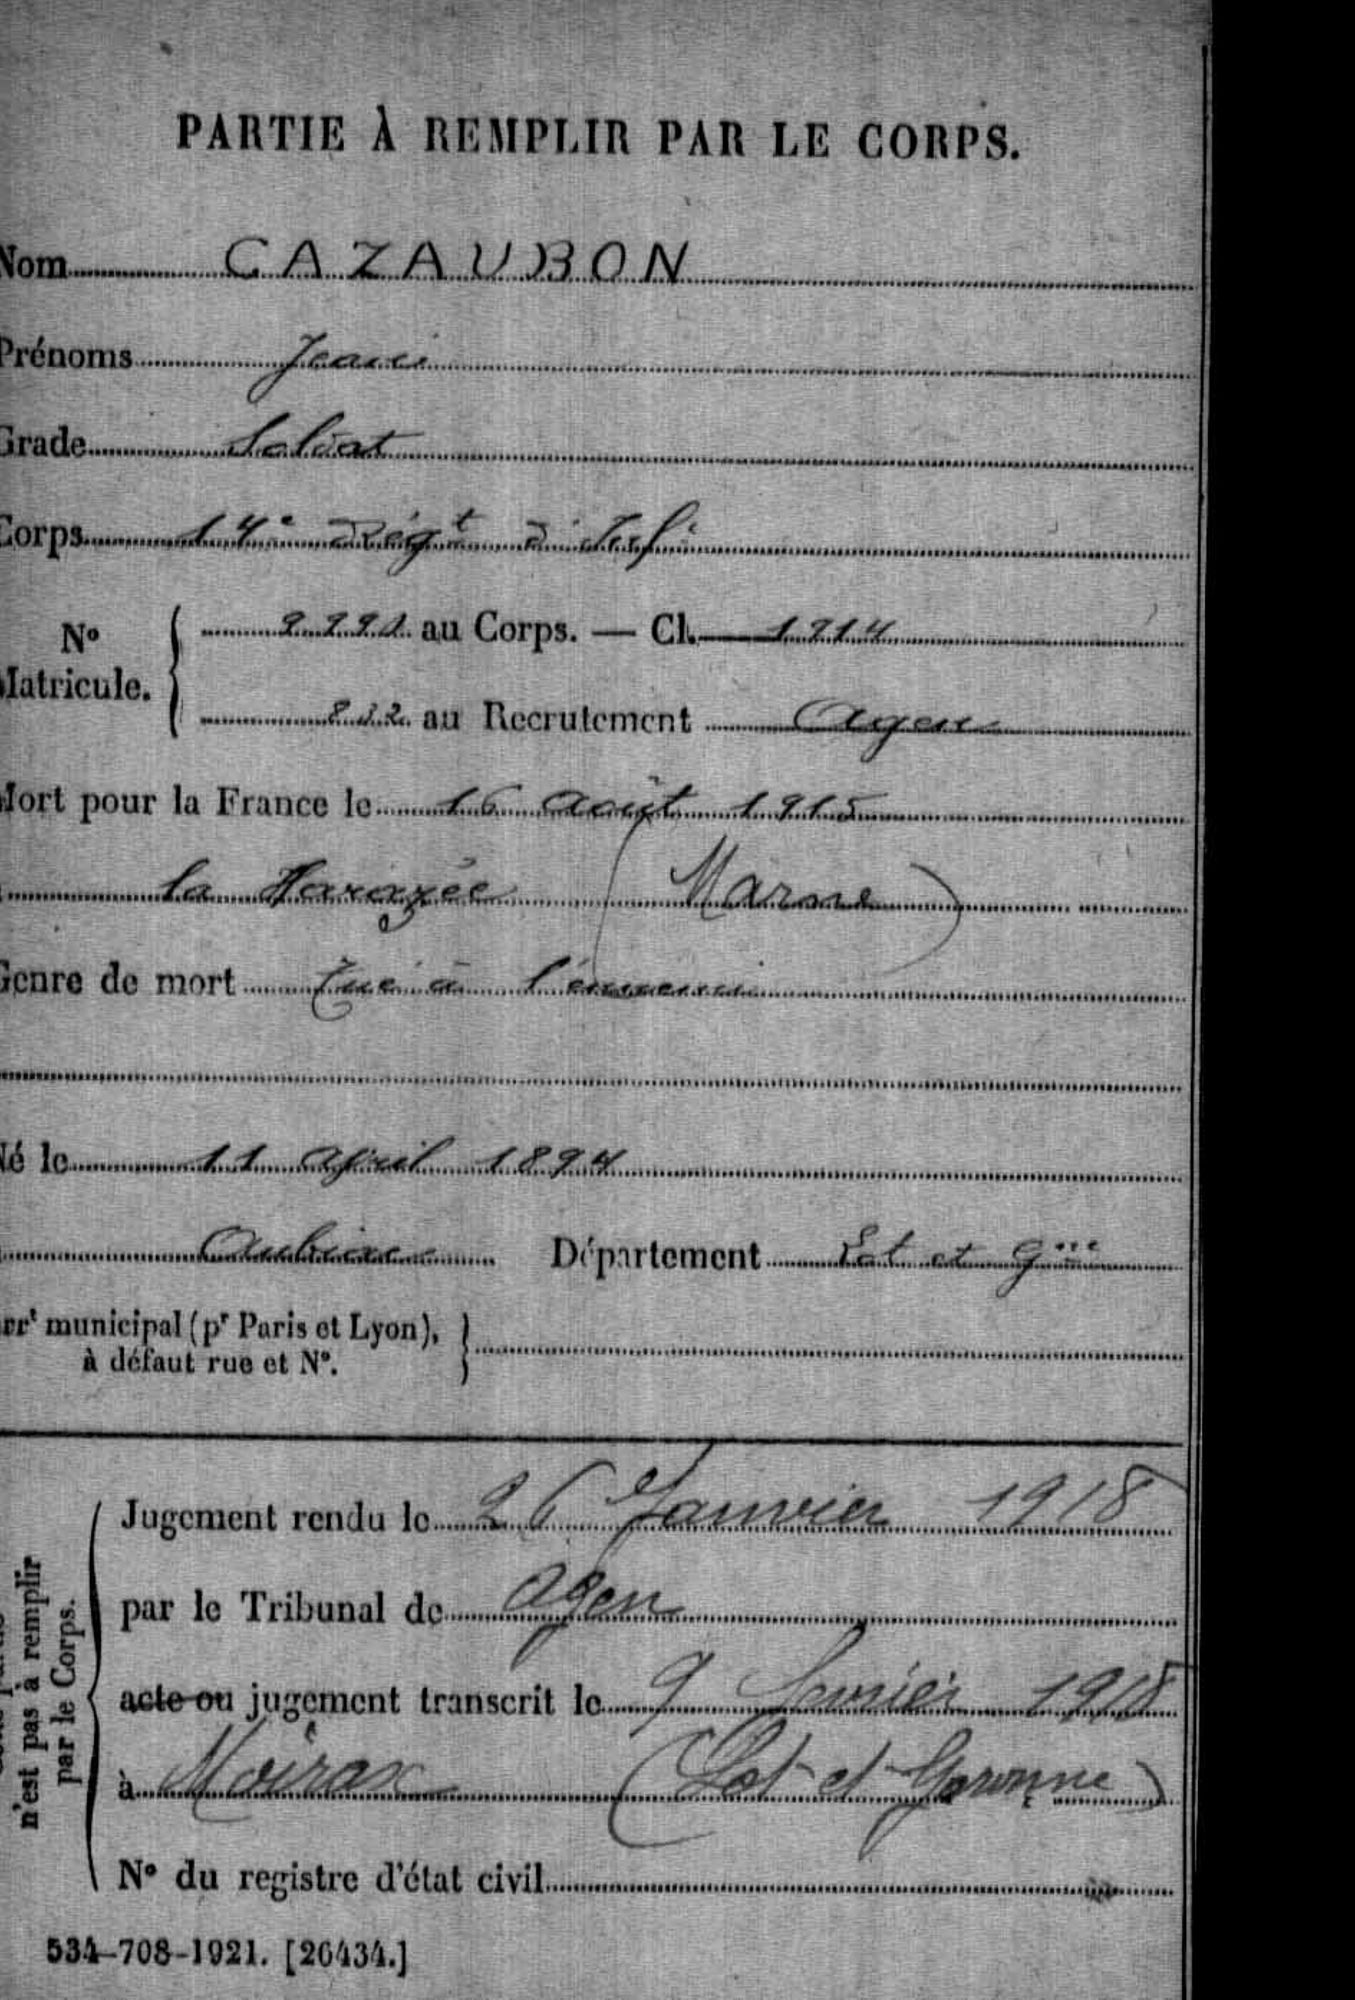 PARTIE À REMPLIR PAR LE CORPS.
Nom CAZAUBON
Prénoms Jean
Grade Soldat
Corps 14e Régt d'Infie
No
Matricule.
au Corps. — Cl. 1914
832 au Recrutement Agen
Mort pour la France le 16 août 1915
la Harazée (Marne)
Genre de mort Tué à l'ennemi
Né le 11 Avril 1894
Aubiac Département Lot et Gne
arrt municipal (pr Paris et Lyon),
à défaut rue et No.
n'est pas à remplir
par le Corps.
Jugement rendu le 26 Janvier 1918
par le Tribunal de Agen
acte ou jugement transcrit le 9 Février 1918
à Moirax (Lot et Garonne)
No du registre d'état civil
534-708-1921. [26434.]